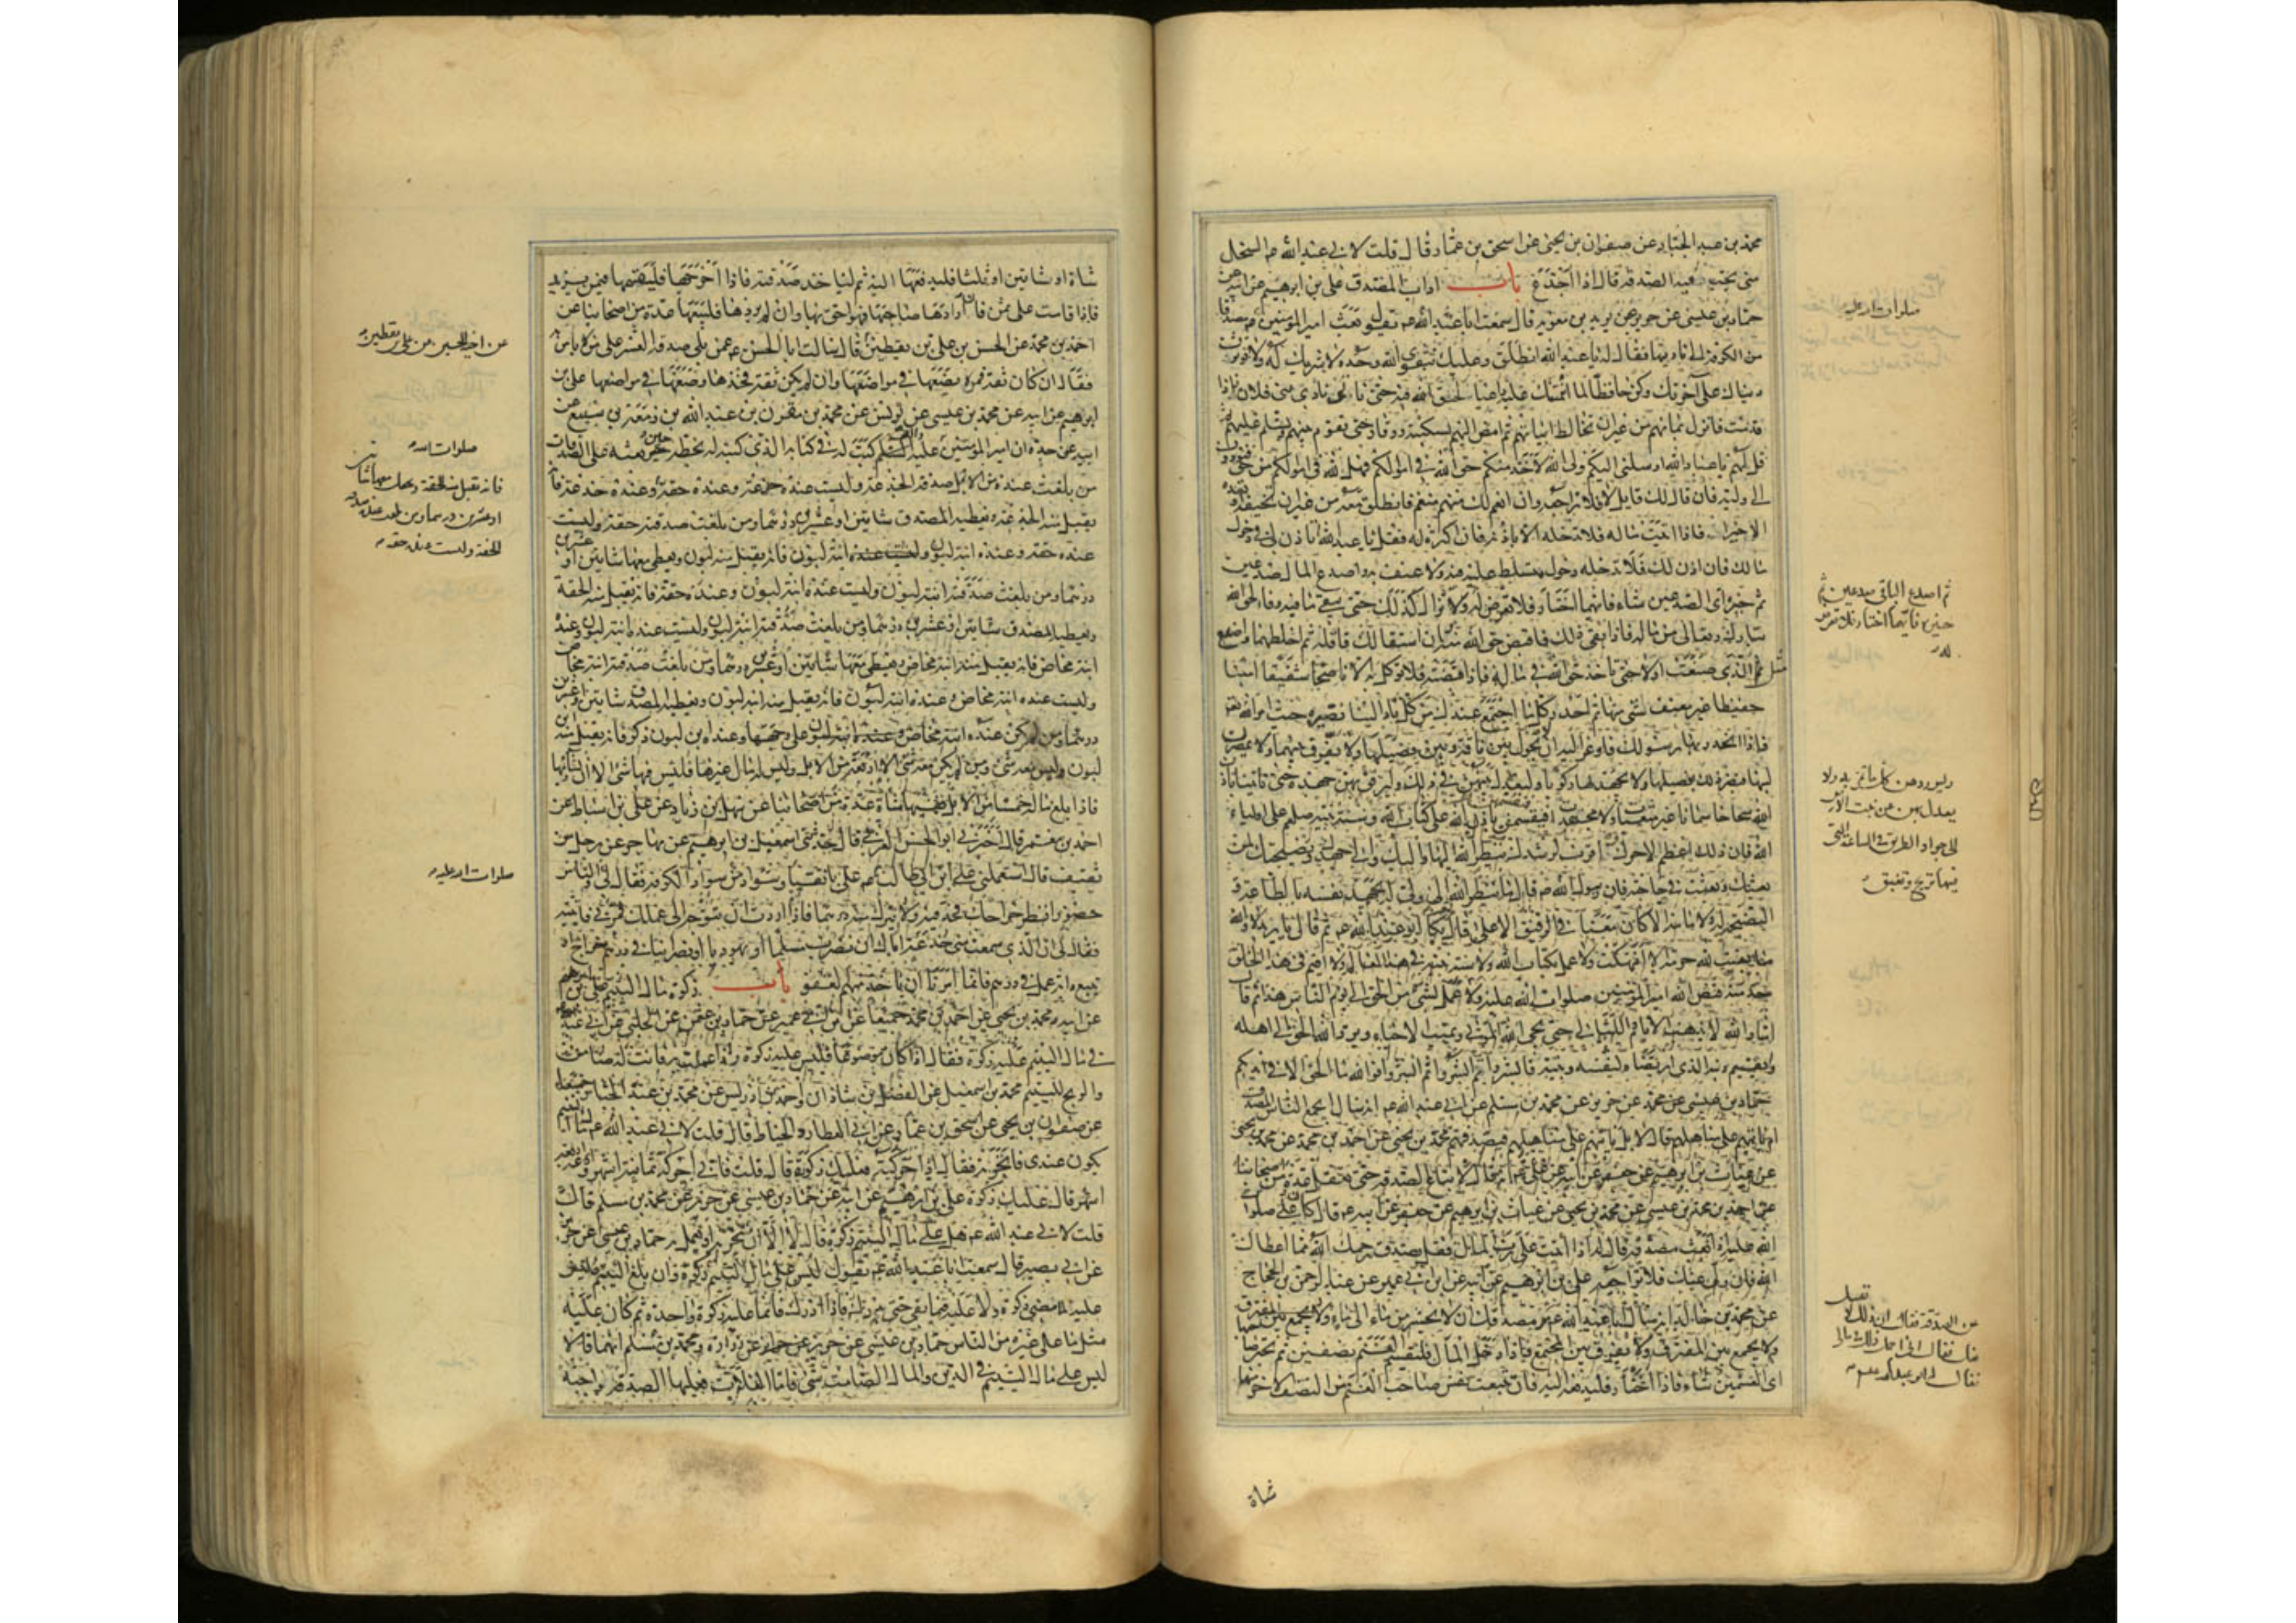 محمد بن عبد الجبار عن صفوان بن يحيى عن اسحق بن عمار قال قلت لابي عبد الله عم السخل
متى يجب فيه الصدقة قال اذا اجذع باب ادب المصدق علي بن ابرهيم عن ابيه عن
حماد بن عيسى عن حريز عن بريد بن معوية قال سمعت ابا عبد الله عم يقول بعث امير المؤمنين عم مصدقا
من الكوفة الى باديتها فقال له يا عبد الله انطلق وعليك بتقوى الله وحده لا شريك له ولا تؤثرن
دنياك على آخرتك وكن حافظا لما ائتمنتك عليه راعيا لحق الله فيه حتى تاتي نادي بني فلان فاذا
قدمت فانزل بمائهم من غير ان تخالط ابياتهم ثم امض اليهم بسكينة ووقار حتى تقوم بينهم وتسلم عليهم
قل لهم يا عباد الله ارسلني اليكم ولي الله لآخذ منكم حق الله في اموالكم فهل لله في اموالكم من حق فتؤدون
الى وليه فان قال لك قايل لا فلا تراجعه وان انعم لك منهم منعم فانطلق معه من غير ان تخيفه او تعده
الا خيرا فاذا اتيت ماله فلا تدخله الا باذنه فان اكثره له فقل يا عبد الله اتاذن لي في دخول
مالك فان اذن لك فلا تدخله دخول متسلط عليه فيه ولا عنف به واصدع المال صدعين
ثم خيره اي الصدعين شاء فايهما اختار فلا تعرض له ولا تزال كذلك حتى يبقى ما فيه وفاء لحق الله
تبارك وتعالى من ماله فاذا بقي ذلك فاقبض حق الله منه وان استقالك فاقله ثم اخلطهما واصنع
مثل الذي صنعت اولا حتى تاخذ حق الله في ماله فاذا قبضته فلا توكل به الا ناصحا شفيقا امينا
حفيظا غير معنف لشي منها ثم احدر كل ما اجتمع عندك من كل ناد الينا نصيره حيث امر الله
فاذا انحدر بها رسولك فاوعز اليه ان لا يحول بين ناقة وبين فصيلها ولا يفرق بينهما ولا يمصرن
لبنها فيضر ذلك بفصيلها ولا يجهد بها ركوبا وليعدل بينهن في ذلك وليرفق بهن جهده حتى تاتينا باذن
الله سحاحا سمانا غير متعبات ولا مجهدات فيقسمن باذن الله على كتاب الله وسنة نبيه صلعم على اولياء
الله فان ذلك اعظم لاجرك واقرب لرشدك ينظر الله اليها واليك والى جهدك ونصيحتك لمن
بعثك وبعثت في حاجته فان رسول الله ص قال ما ينظر الله الى ولي له يجهد نفسه بالطاعة و
النصيحة له ولامامه الا كان معنا في الرفيق الاعلى قال ثم بكى ابو عبد الله عم ثم قال يا بريد لا والله
ما بقيت لله حرمة الا انتهكت ولا عمل بكتاب الله ولا سنة نبيه في هذا العالم ولا اقيم في هذا الخلق
حد منذ قبض الله امير المؤمنين صلوات الله عليه ولا عمل بشي من الحق الى يوم الناس هذا ثم قال
اما والله لا تذهب الايام والليالي حتى يحيي الله الموتى ويميت الاحياء ويرد الله الحق الى اهله
ويقيم دينه الذي ارتضاه لنفسه ونبيه فابشروا ثم ابشروا ثم ابشروا فوالله ما الحق الا في ايديكم
حماد بن عيسى عن حريز عن محمد بن مسلم عن ابي عبد الله عم انه سال ايجمع الناس المصدق
ام ياتيهم على مناهلهم قال لا بل ياتيهم على مناهلهم فيصدقهم محمد بن يحيى عن احمد بن محمد عن محمد بن يحيى
عن غياث بن ابرهيم عن جعفر عن ابيه عن علي عم انه قال لا تباع الصدقة حتى تعقل عدة من اصحابنا
عن احمد بن محمد بن عيسى عن محمد بن يحيى عن غياث بن ابرهيم عن جعفر عن ابيه عم قال كان علي صلوات
الله عليه اذا بعث مصدقه قال له اذا اتيت على رب المال فقل تصدق رحمك الله مما اعطاك
الله فان ولى عنك فلا تراجعه علي بن ابرهيم عن ابيه عن ابن ابي عمير عن عبد الرحمن بن الحجاج
عن محمد بن خالد انه سال ابا عبد الله عم عن الصدقة فقال مر مصدقك ان لا يحشر من ماء الى ماء ولا يجمع بين المتفرق
ولا يفرق بين المجتمع فاذا دخل المال فليقسم الغنم نصفين ثم يخير صاحبها
اي القسمين شاء فاذا اختار فليدفعه اليه فان تتبعت نفس صاحب الغنم من النصف الاخر منها
صلوات الله عليه
ثم اصدع الباقي صدعين ثم
خيره فايهما اختار فلا تعرض
له
وليوردهن كل ماء يمر به ولا
يعدل بهن عن نبت الارض
الى جواد الطريق في الساعة التي
فيها تريح وتغبق
عن الصدقة فقال ان ذلك لا يقبل
منك فقال اني احمل ذلك في مالي
فقال له ابو عبد الله عم
شاة
شاة او شاتين او ثلثا فليدفعها اليه ثم لياخذ صدقته فاذا اخرجها فليقسمها فيمن يريد
فاذا قامت على ثمن فان ارادها صاحبها فهو احق بها وان لم يردها فليبعها عدة من اصحابنا عن
احمد بن محمد عن الحسن بن علي بن يقطين قال سالت ابا الحسن عم عمن يلي صدقة العشر على من لا باس به
فقال ان كان ثقة فمره يضعها في مواضعها وان لم يكن ثقة فخذها وضعها في مواضعها علي بن
ابرهيم عن ابيه عن محمد بن عيسى عن يونس عن محمد بن مقرن بن عبد الله بن زمعة بن سبيع عن
ابيه عن جده ان امير المؤمنين عليه السلم كتب له في كتابه الذي كتبه له بخطه حين بعثه على الصدقات
من بلغت عنده من الابل صدقة الجذعة وليست عنده جذعة وعنده حقة وعنده جذعة فانه
يقبل منه الجذعة ويعطيه المصدق شاتين او عشرين درهما ومن بلغت صدقته حقة وليست
عنده حقة وعنده ابنة لبون فانه يقبل منه لبون ويعطي معها شاتين او عشرين
درهما ومن بلغت صدقته ابنة لبون وليست عنده ابنة لبون وعنده حقة فانه يقبل منه الحقة
ويعطيه المصدق شاتين او عشرين درهما ومن بلغت صدقته ابنة لبون وليست عنده ابنة لبون وعنده
ابنة مخاض فانه يقبل منه ابنة مخاض ويعطي معها شاتين او عشرين درهما ومن بلغت صدقته ابنة مخاض
وليست عنده ابنة مخاض وعنده ابنة لبون فانه يقبل منه ابنة لبون ويعطيه المصدق شاتين او عشرين
درهما ومن لم يكن عنده ابنة مخاض على وجهها وعنده ابن لبون ذكر فانه يقبل منه ابن
لبون وليس معه شي ومن لم يكن معه شي الا اربعة من الابل وليس له مال غيرها فليس فيها شي الا ان يشاء ربها
فاذا بلغ ماله خمسا من الابل ففيها شاة عدة من اصحابنا عن سهل بن زياد عن علي بن اسباط عن
احمد بن معمر قال اخبرني ابو الحسن العرني قال حدثني اسمعيل بن ابرهيم عن مهاجر عن رجل من
ثقيف قال استعملني علي بن ابي طالب عم على بانقيا وسواد من سواد الكوفة فقال لي والناس
حضور انظر خراجك فجد فيه ولا تترك منه درهما فاذا اردت ان تتوجه الى عملك فمر بي قال فاتيته
فقال لي ان الذي سمعت مني خدعة اياك ان تضرب مسلما او يهوديا او نصرانيا في درهم خراج او
تبيع دابة عمل في درهم فانما امرنا ان ناخذ منهم العفو باب زكوة مال اليتيم علي بن ابرهيم
عن ابيه ومحمد بن يحيى عن احمد بن محمد جميعا عن ابن ابي عمير عن حماد بن عثمن عن الحلبي عن ابي عبد الله
في مال اليتيم عليه زكوة فقال اذا كان موضوعا فليس عليه زكوة واذا عملت به فانت له ضامن
والربح لليتيم محمد بن اسمعيل عن الفضل بن شاذان واحمد بن ادريس عن محمد بن عبد الجبار جميعا
عن صفوان بن يحيى عن اسحق بن عمار عن ابي العطارد الخياط قال قلت لابي عبد الله عم مال اليتيم
يكون عندي فاتجر به فقال اذا حركته فعليك زكوة قال قلت فاني احركه ثمانية اشهر وادعه اربعة
اشهر قال عليك زكوة علي بن ابرهيم عن ابيه عن حماد بن عيسى عن حريز عن محمد بن مسلم قال
قلت لابي عبد الله عم هل على مال اليتيم زكوة قال لا الا ان تتجر به او تعمل به حماد بن عيسى عن حريز
عن ابي بصير قال سمعت ابا عبد الله عم يقول ليس على مال اليتيم زكوة وان بلغ اليتيم فليس
عليه لما مضى زكوة ولا عليه فيما بقي حتى يدرك فاذا ادرك فانما عليه زكوة واحدة ثم كان عليه
مثل ما على غيره من الناس حماد بن عيسى عن حريز عن زرارة ومحمد بن مسلم انهما قالا
ليس على مال اليتيم في الدين والمال الصامت شي فاما الغلات فعليها الصدقة واجبة
عن اخيه الحسين عن علي بن يقطين
صلوات الله
فانه تقبل منه الحقة ويجعل معها شاتين
او عشرين درهما ومن بلغت عنده صدقة
الحقة وليست عنده حقة
صلوات الله عليه